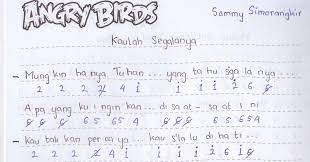 ANGRY BIRDS
Sammy Simorangkir
Kaulah Segalanya
– Mung kin hanya Tuhan ... yang ta hu sgala nya ....
2 2 2 2 4 i i i i 2 6 8
A pa yang ku i ngin kan .. di saat – sa at i ni
8 8 8 6 5 65 4 8 8 6 5 654
– Kau tak kan per ca ya ... kau s'la lu di ha ti ...
2 2 2 2 4 i i i i 2 i 6 8